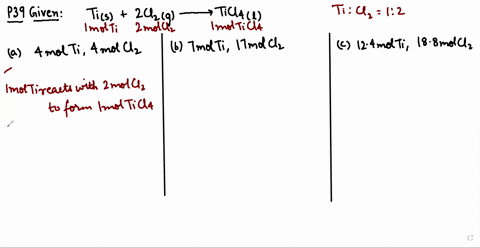 P39 Given: Ti(s) + 2Cl₂(g) ⟶ TiCl₄(l) Ti : Cl₂ = 1:2
1molTi 2molCl₂ 1molTiCl₄
(a) 4molTi, 4molCl₂
1molTi reacts with 2molCl₂
to form 1molTiCl₄
(b) 7molTi, 17molCl₂
(c) 12.4molTi, 18.8molCl₂